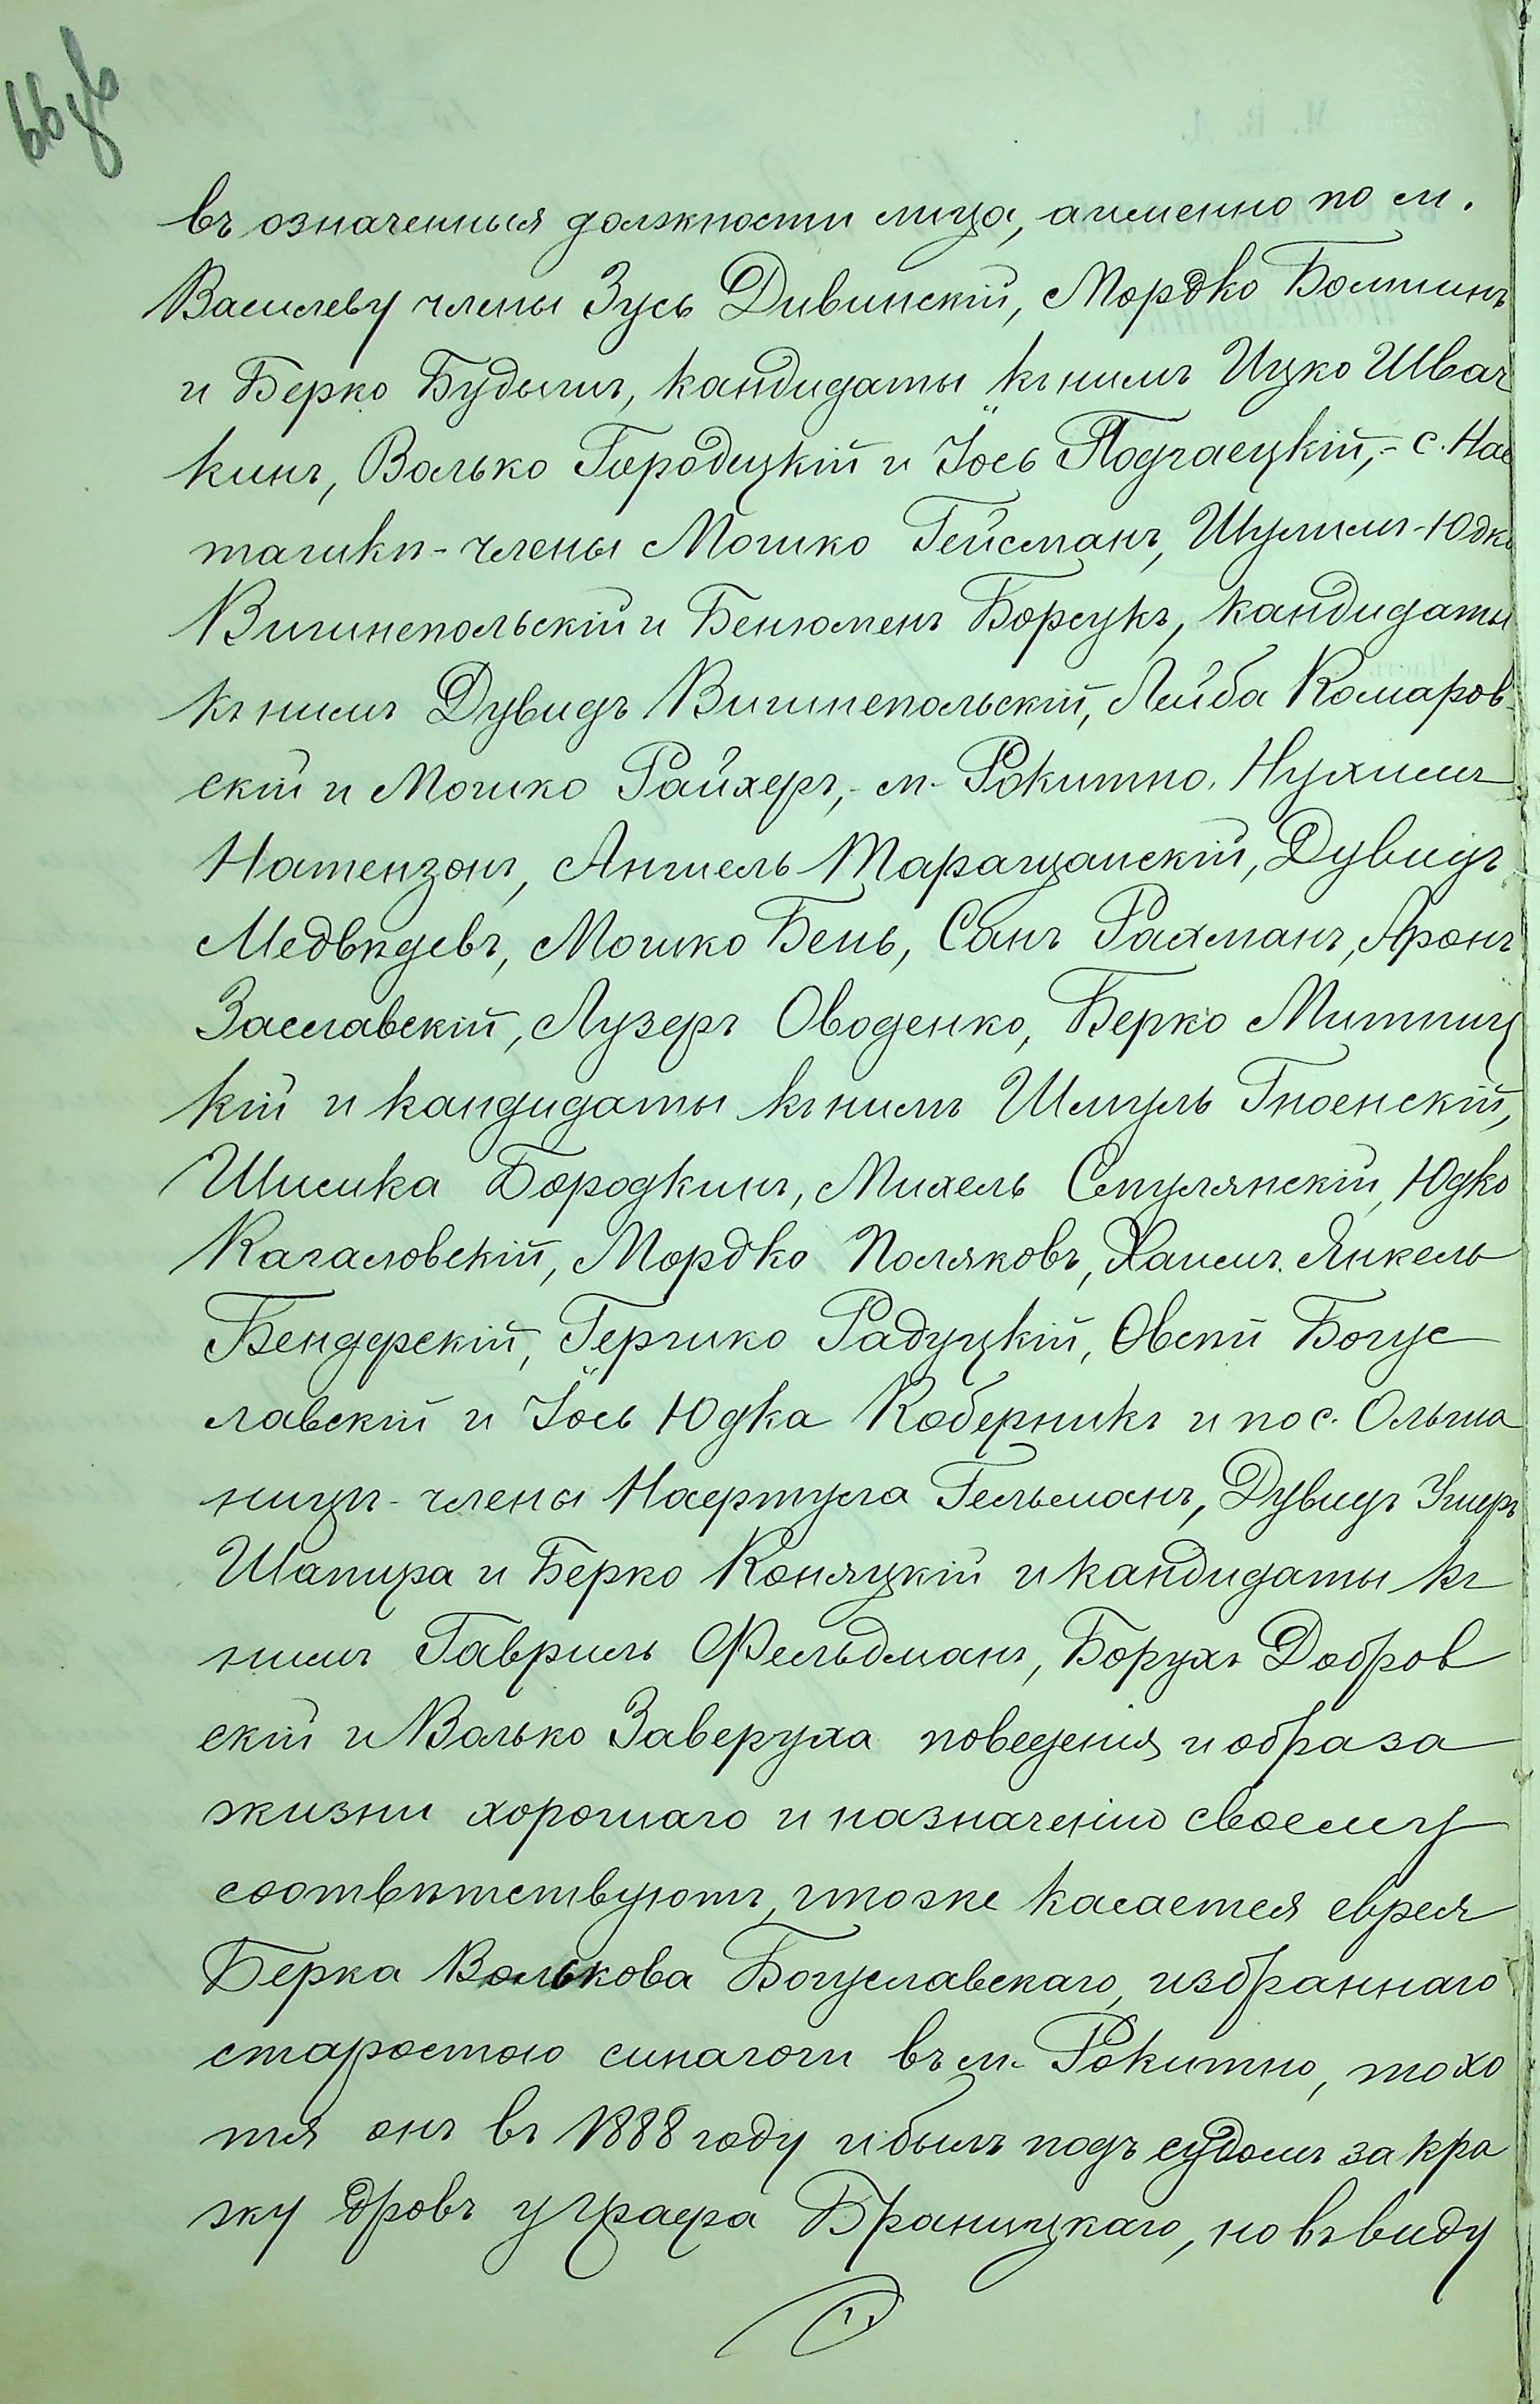 въ означенныя должности лица, а именно по м.
Василеву члены Зусь Дивинскій, Мордко Болтинъ
и Берко Будымъ, кандидаты къ нимъ Ицко Швач
кинъ, Волько Городицкій и Іось Подгаецкій, - с. Нас
ташки - члены Мошко Гейсманъ, Шулимъ-Юдко
Вишнепольскій и Бенюменъ Борсукъ, кандидаты
къ нимъ Дувидъ Вишнепольскій, Лейба Комаров-
скій и Мошко Райхеръ, - м. Рокитно. Нухимъ
Натензонъ, Аншель Таращанскій, Дувидъ
Медвѣдевъ, Мошко Бень, Санъ Рахманъ, Аронъ
Заславскій, Лузеръ Оводенко, Берко Митниц
кій и кандидаты къ нимъ Шмуль Гноенскій,
Шимка Бородкинъ, Михель Стулянскій, Юдко
Кагаловскій, Мордко Поляковъ, Хаимъ Янкель
Бендерскій, Гершко Радуцкій, Овсѣй Богус
лавскій и Іось Юдка Коберникъ и по с. Ольша
ницѣ - члены Нафтула Гельманъ, Дувидъ Ушеръ
Шапира и Берко Коняцкій и кандидаты къ
нимъ Гавриль Фельдманъ, Борухъ Добров
скій и Волько Заверуха поведенія и образа
жизни хорошаго и назначенію своему
соотвѣтствуютъ, что же касается еврея
Берка Волькова Богуславскаго, избраннаго
старостою синагоги въ м. Рокитно, то хо
тя онъ въ 1888 году и былъ подъ судомъ за кра
жу дровъ у графа Браницкаго, но въ виду